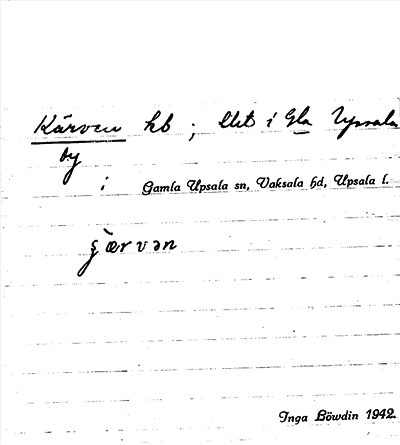 Kärven hb; Utb i Gla Upsala
by
i Gamla Upsala sn, Vaksala hd, Upsala l.
Inga Löwdin 1942.